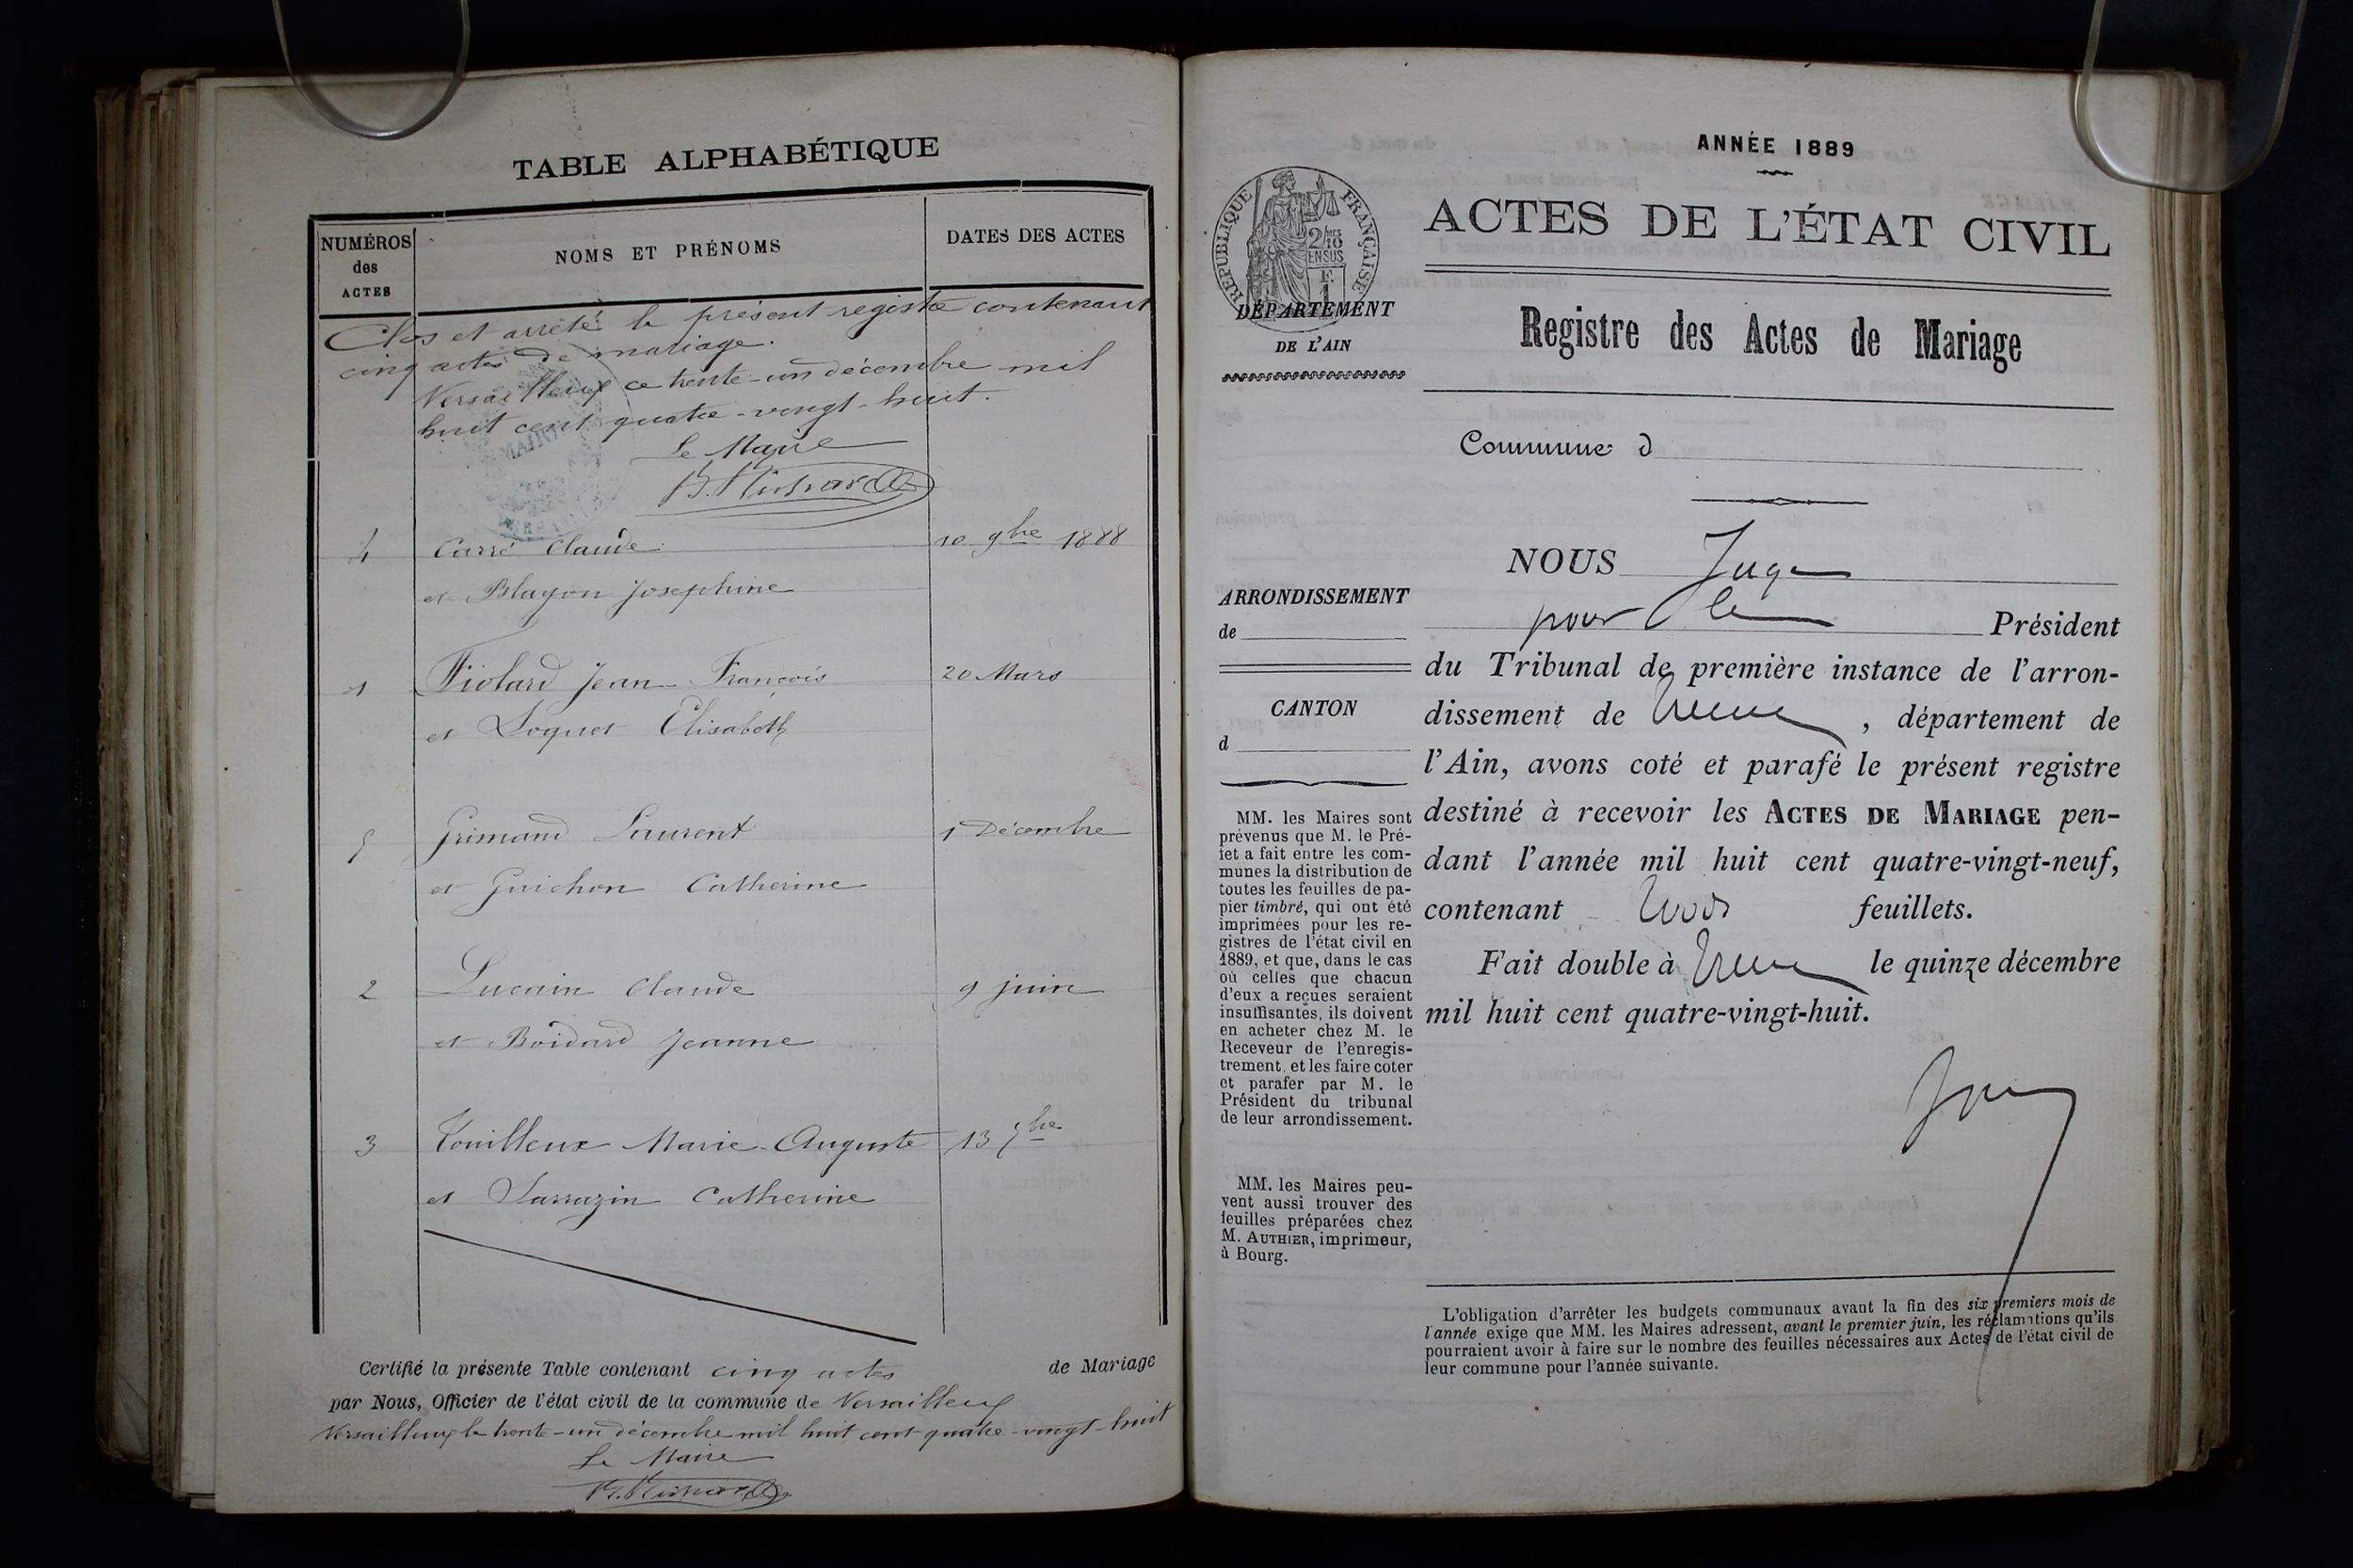 TABLE ALPHABÉTIQUE
NUMÉROS des ACTES
NOMS ET PRÉNOMS
DATES DES ACTES
Clos et arrêté le présent registre contenant
cinq actes de mariage.
Versailleux ce trente-un décembre mil
huit cent quatre-vingt-huit.
Le Maire
MAIRIE
4 Carré Claude 10 9bre 1888
et Blayon Josephine
1 Fiolard Jean François 20 Mars
et Loquet Elisabeth
5 Grimand Laurent 1 Décembre
et Guichon Catherine
2 Lucain Claude 9 juin
et Boidard Jeanne
3 Touilleux Marie-Auguste 13 7bre
et Sarrazin Catherine
Certifié la présente Table contenant cinq actes de Mariage
par Nous, Officier de l'état civil de la commune de Versailleux
Versailleux le trente-un décembre mil huit cent quatre-vingt-huit
Le Maire
ANNÉE 1889
RÉPUBLIQUE FRANÇAISE
2/10 EN SUS
E
1
ACTES DE L'ÉTAT CIVIL
DÉPARTEMENT
DE L'AIN
Registre des Actes de Mariage
Commune d
ARRONDISSEMENT
de
CANTON
d
MM. les Maires sont
prévenus que M. le Pré-
fet a fait entre les com-
munes la distribution de
toutes les feuilles de pa-
pier timbré, qui ont été
imprimées pour les re-
gistres de l'état civil en
1889, et que, dans le cas
où celles que chacun
d'eux a reçues seraient
insuffisantes, ils doivent
en acheter chez M. le
Receveur de l'enregis-
trement et les faire coter
et parafer par M. le
Président du tribunal
de leur arrondissement.
MM. les Maires peu-
vent aussi trouver des
feuilles préparées chez
M. AUTHIER, imprimeur,
à Bourg.
NOUS Juge
pour le Président
du Tribunal de première instance de l'arron-
dissement de Trévoux, département de
l'Ain, avons coté et parafé le présent registre
destiné à recevoir les ACTES DE MARIAGE pen-
dant l'année mil huit cent quatre-vingt-neuf,
contenant trois feuillets.
Fait double à Trévoux le quinze décembre
mil huit cent quatre-vingt-huit.
L'obligation d'arrêter les budgets communaux avant la fin des six premiers mois de
l'année exige que MM. les Maires adressent, avant le premier juin, les réclamations qu'ils
pourraient avoir à faire sur le nombre des feuilles nécessaires aux Actes de l'état civil de
leur commune pour l'année suivante.